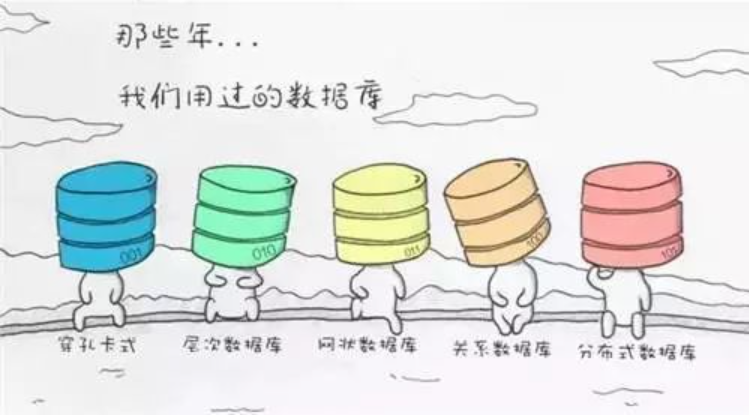 那些年...
我们用过的数据库
001
010
011
100
穿孔卡式
层次数据库
网状数据库
关系数据库
分布式数据库